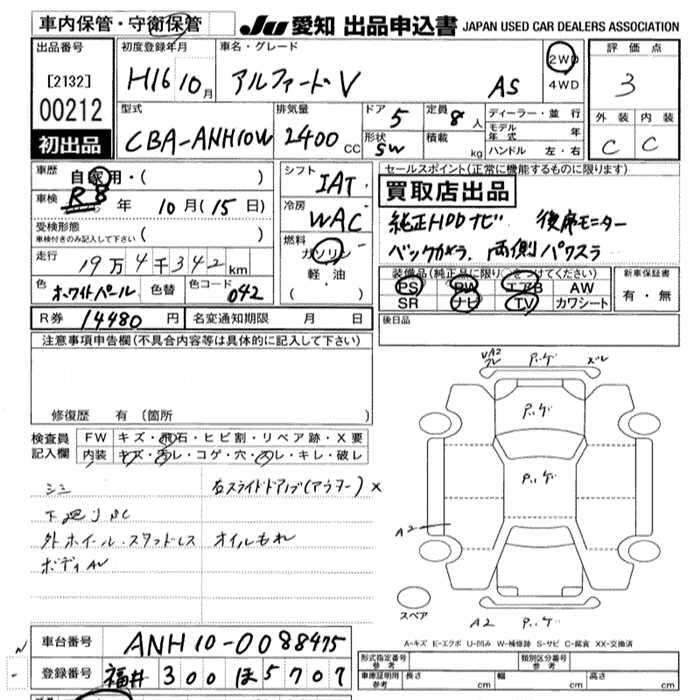 車内保管・守衛保管
JU 愛知 出品申込書 JAPAN USED CAR DEALERS ASSOCIATION
出品番号
[2132]
00212
初出品
初度登録年月
H16 10月
車名・グレード
アルファード V
AS
2WD
4WD
評価点
3
外装 内装
C C
型式
CBA-ANH10W
排気量
2400 CC
ドア 5
定員 8 人
形状 SW
積載 kg
ディーラー・並行
モデル年式 年
ハンドル 左・右
車歴 自家用・( )
車検 R8 年 10月(15日)
受検形態
車検付きのみ記入して下さい ( )
走行 19万4千342km
色 ホワイトパール 色替 色コード 042
シフト IAT
冷房 WAC
燃料 ガソリン
軽・油
( )
セールスポイント(正常に機能するものに限ります)
買取店出品
純正HDDナビ 後席モニター
バックカメラ、両側パワスラ
装備品(純正品に限り○をつけてください)
PS PW エアB AW
SR ナビ TV カワシート
新車保証書
有・無
R券 14480 円 名変通知期限 月 日
後日品
注意事項申告欄(不具合内容等は具体的に記入して下さい)
修復歴 有(箇所
検査員記入欄
FW キズ・飛石・ヒビ割・リペア跡・X要
内装 キズ・汚レ・コゲ・穴・スレ・キレ・破レ
シミ
右スライドドアノブ(アウター)×
下廻りSC
外ホイール・スタッドレス オイルもれ
ボディAU
A2
スペア
A2
A-キズ E-エクボ U-凹み W-補修跡 S-サビ C-腐食 XX-交換済
車台番号 ANH10-0088475
登録番号 福井 300 ほ 5707
形式指定番号 参考
類別区分番号 参考
車庫証明用 参考 長さ cm 幅 cm 高さ cm